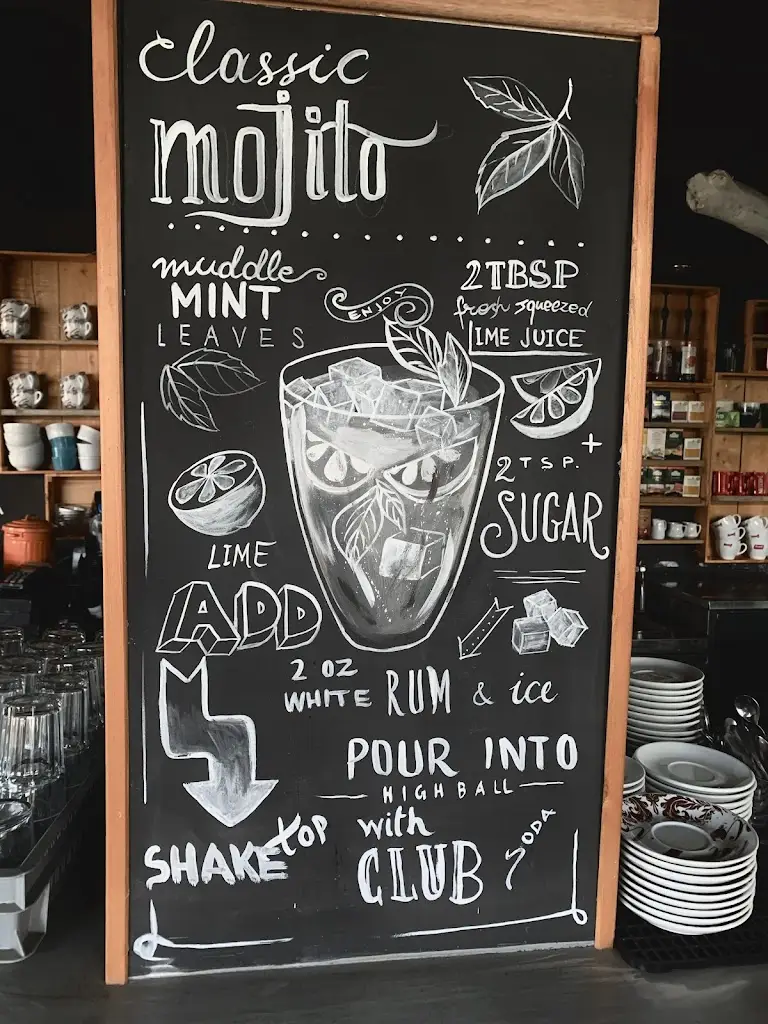 Classic
mojito
muddle
MINT
LEAVES
ENJOY
2 TBSP
fresh squeezed
LIME JUICE
+
2 TSP.
SUGAR
LIME
ADD
2 OZ
WHITE RUM & ice
POUR INTO
HIGHBALL
SHAKE
top with
CLUB SODA